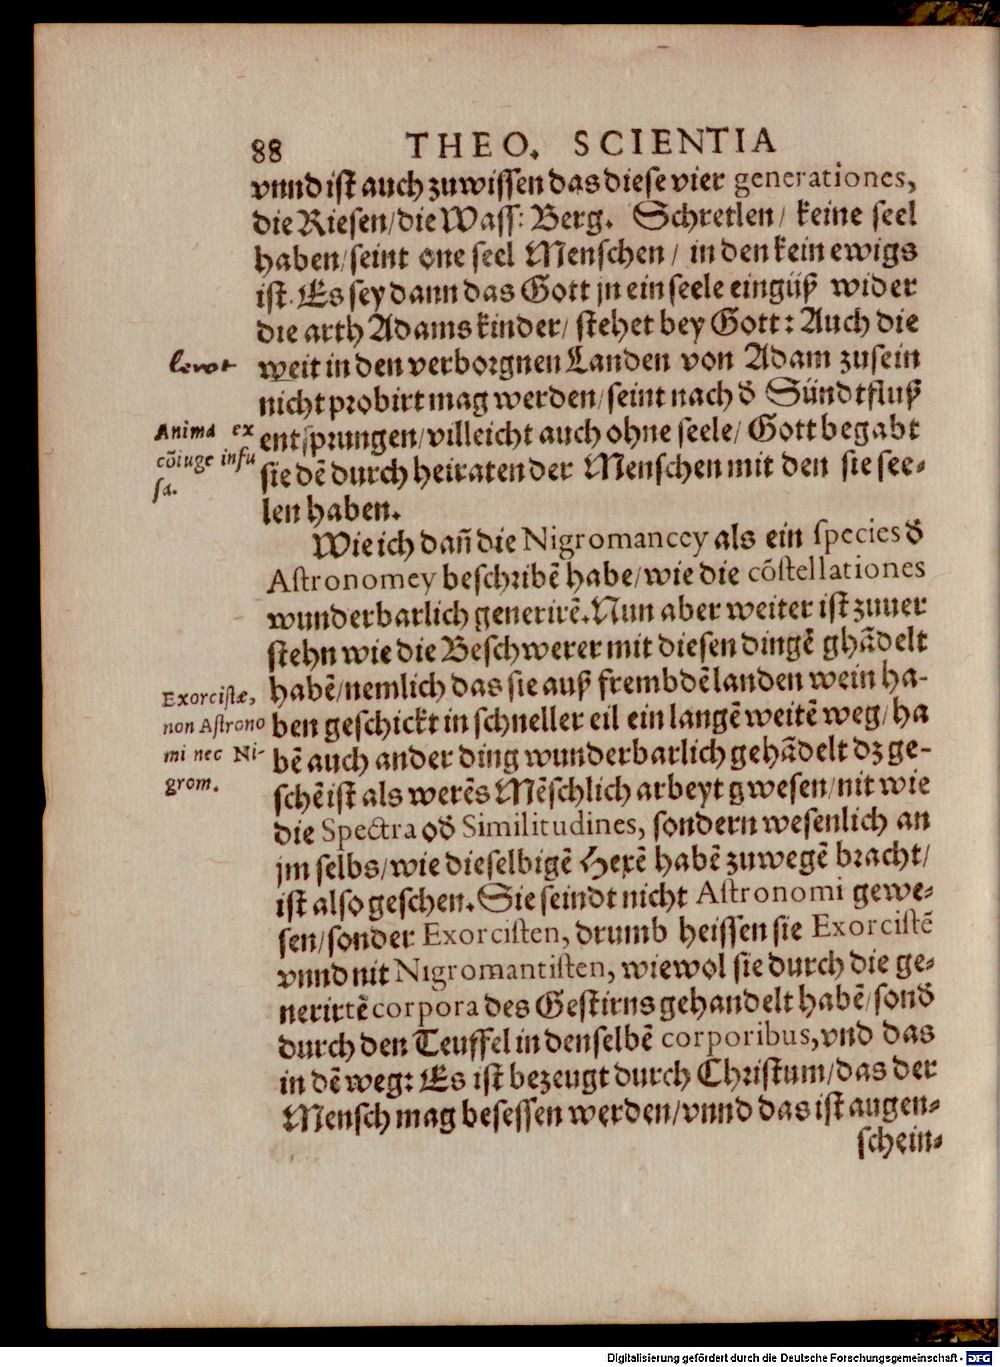 88 THEO. SCIENTIA
vnnd ist auch zuwissen das diese vier generationes,
die Riesen/die Wass: Berg. Schretlen/ keine seel
haben/seint one seel Menschen/ in den kein ewigs
ist. Es sey dann das Gott jn ein seele eingüß wider
die arth Adams kinder/ stehet bey Gott: Auch die
weit in den verborgnen Landen von Adam zusein
nicht probirt mag werden/seint nach d̄ Sündtfluß
Anima ex
entsprungen/villeicht auch ohne seele/ Gott begabt
cōiuge infu
sie dē durch heiraten der Menschen mit den sie see-
sa.
len haben.
Wie ich dañ die Nigromancey als ein species d̄
Astronomey beschribē habe/wie die cōstellationes
wunderbarlich generirē. Nun aber weiter ist zuuer
stehn wie die Beschwerer mit diesen dingē ghādelt
Exorcistæ,
habē/nemlich das sie auß frembdē landen wein ha-
non Astrono
ben geschickt in schneller eil ein langē weitē weg/ha
mi nec Ni-
bē auch ander ding wunderbarlich gehādelt dz ge-
grom.
schē ist als werēs Mēschlich arbeyt gwesen/nit wie
die Spectra od̄ Similitudines, sondern wesenlich an
jm selbs/wie dieselbigē Hexē habē zuwegē bracht/
ist also geschen. Sie seindt nicht Astronomi gewe-
sen/sonder Exorcisten, drumb heissen sie Exorcistē
vnnd nit Nigromantisten, wiewol sie durch die ge-
nerirtē corpora des Gestirns gehandelt habē/sond̄
durch den Teuffel in denselbē corporibus, vnd das
in dē weg: Es ist bezeugt durch Christum/das der
Mensch mag besessen werden/vnnd das ist augen-
schein-
Digitalisierung gefördert durch die Deutsche Forschungsgemeinschaft - DFG